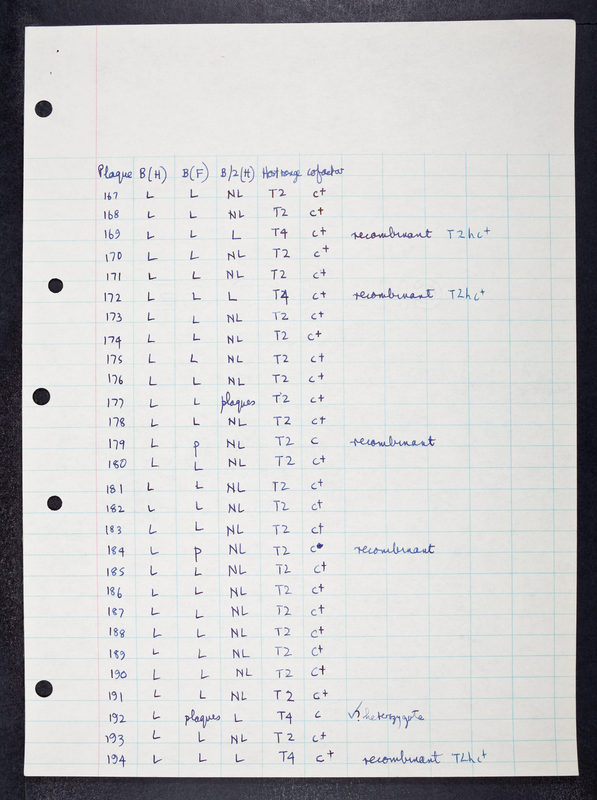 Plaque B(H) B(F) B/2(H) Host range cofactor
167 L L NL T2 c+
168 L L NL T2 c+
169 L L L T4 c+ recombinant T2hc+
170 L L NL T2 c+
171 L L NL T2 c+
172 L L L T4 c+ recombinant T2hc+
173 L L NL T2 c+
174 L L NL T2 c+
175 L L NL T2 c+
176 L L NL T2 c+
177 L L plaques T2 c+
178 L L NL T2 c+
179 L p NL T2 c recombinant
180 L L NL T2 c+
181 L L NL T2 c+
182 L L NL T2 c+
183 L L NL T2 c+
184 L p NL T2 c recombinant
185 L L NL T2 c+
186 L L NL T2 c+
187 L L NL T2 c+
188 L L NL T2 c+
189 L L NL T2 c+
190 L L NL T2 c+
191 L L NL T2 c+
192 L plaques L T4 c ? heterozygote
193 L L NL T2 c+
194 L L L T4 c+ recombinant T2hc+